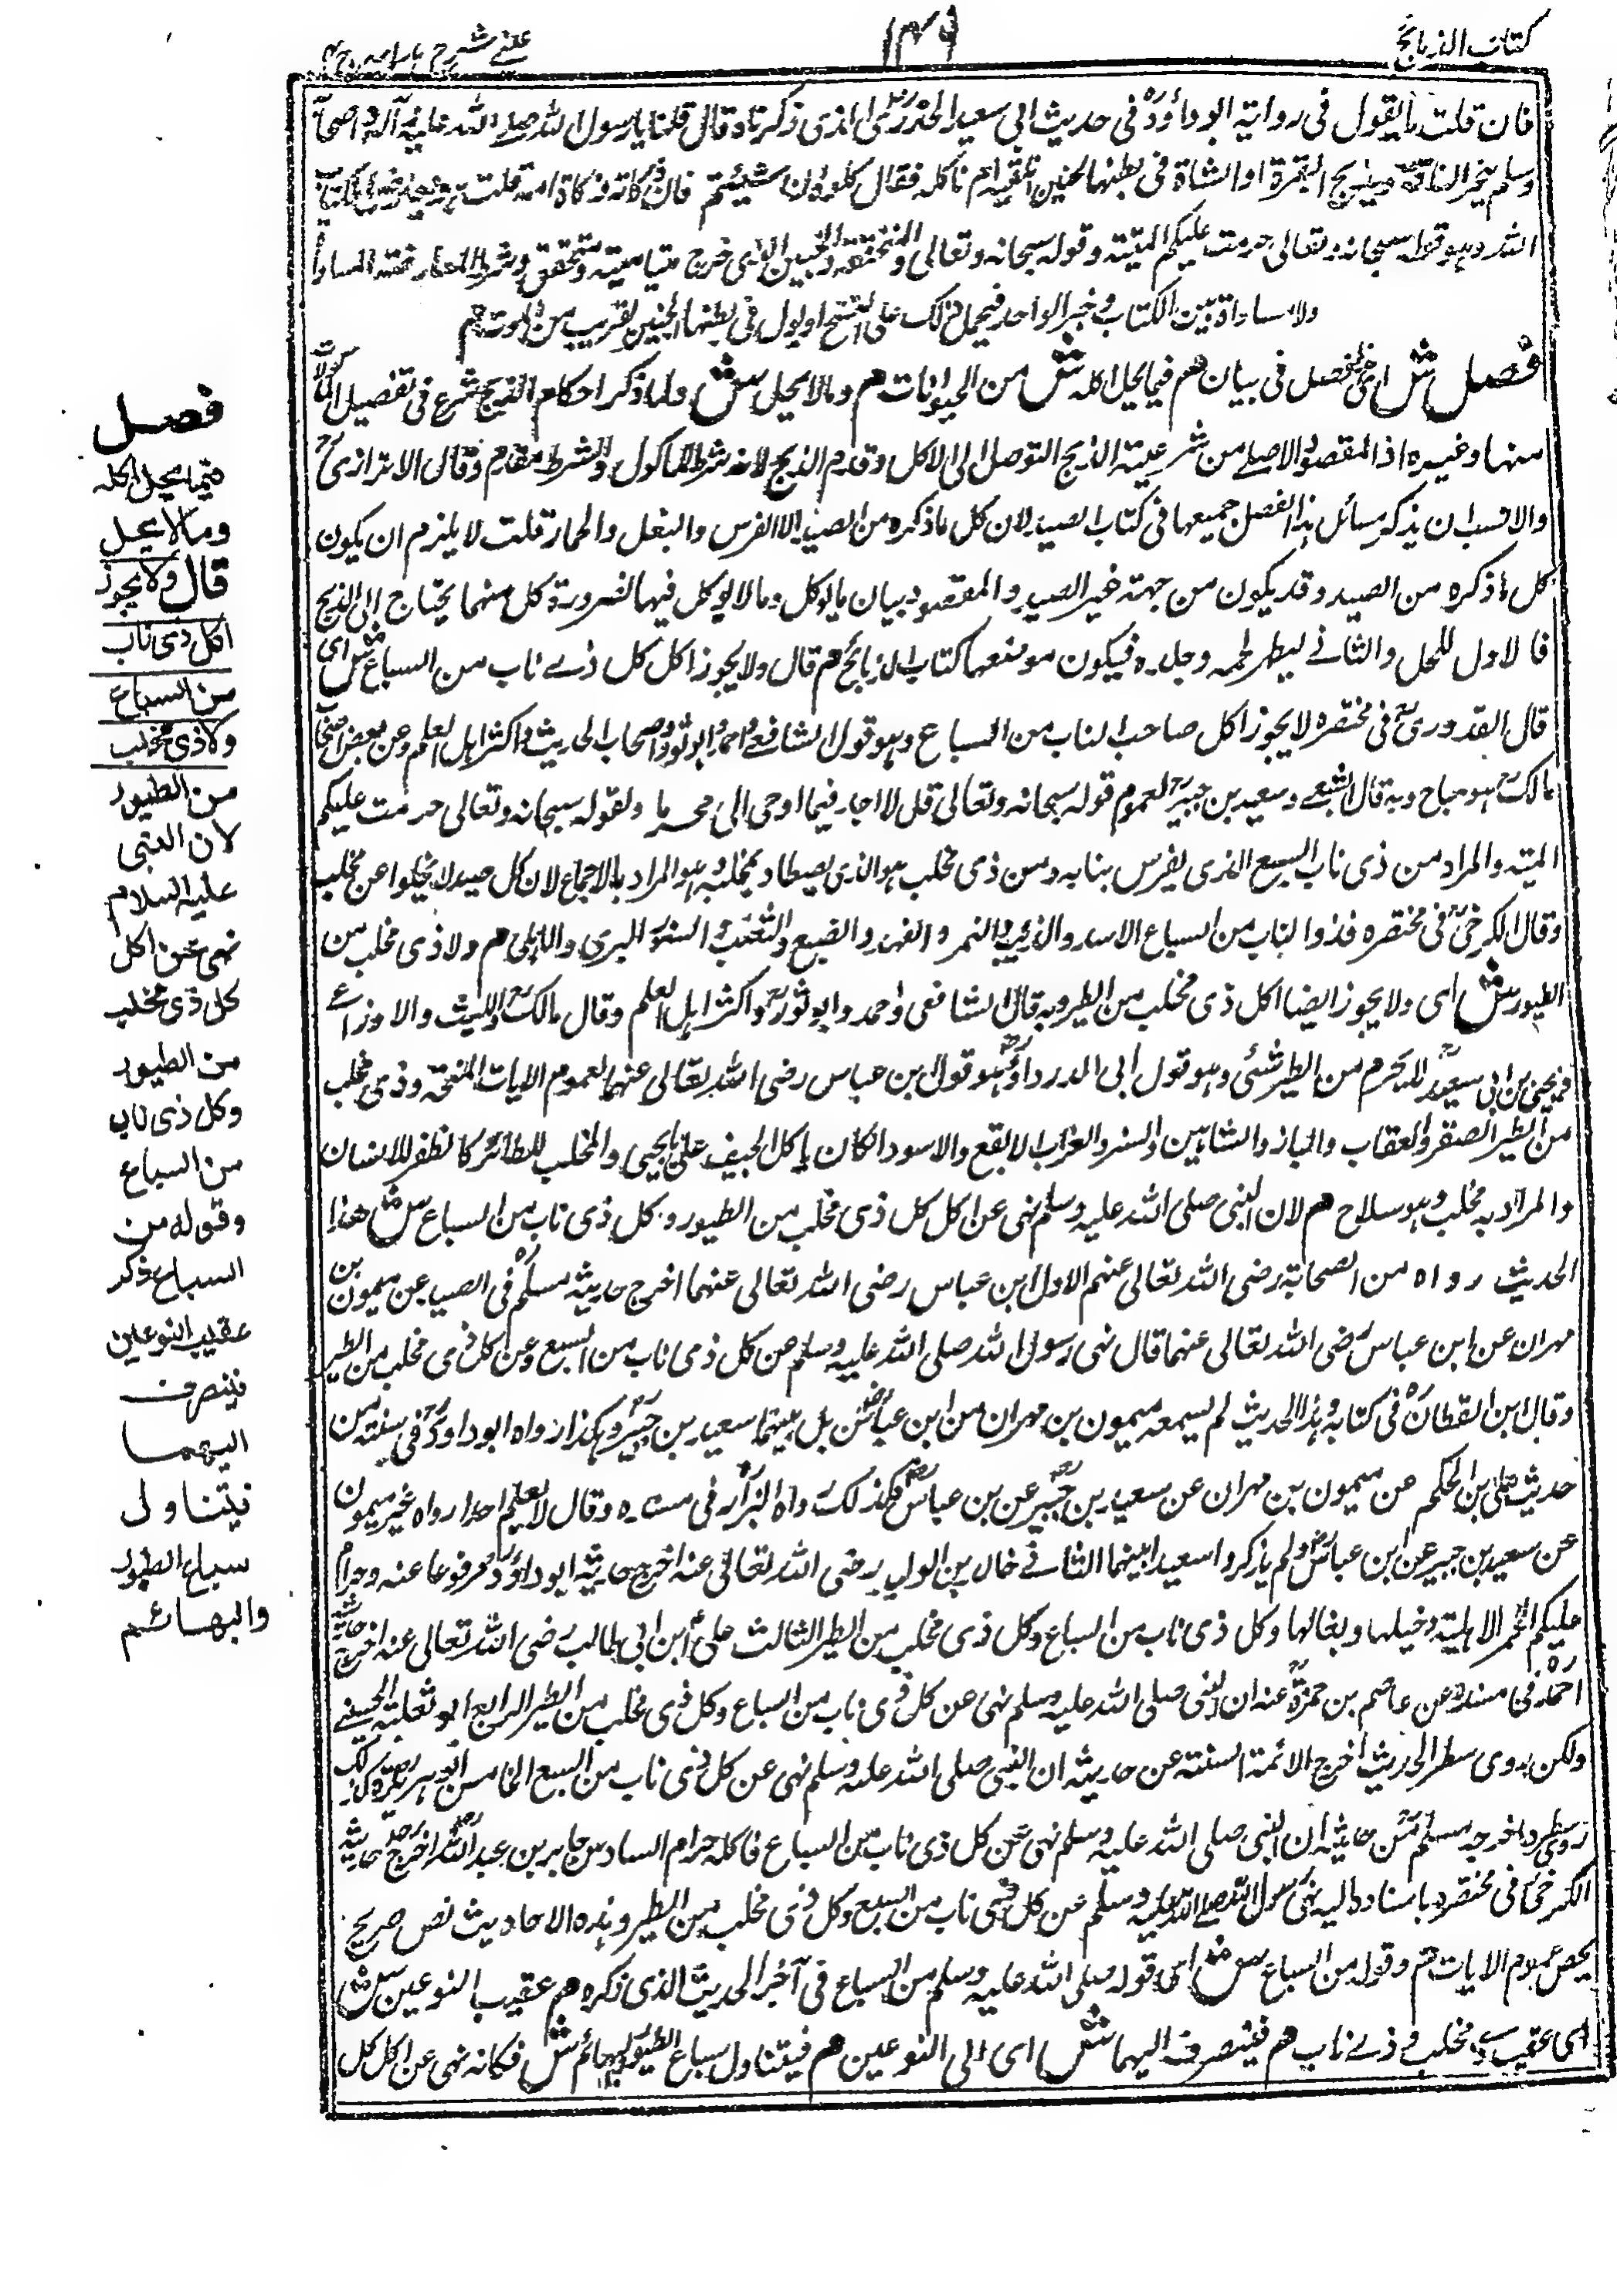 كتاب الذبائح
١٣٩
عينى شرح هدايه ج ٤
فان قلت ما يقول فى رواية ابو داؤدؒ فى حديث ابى سعيد الخدرىؓ الذى ذكرناه قال قلنا يا رسول الله صلے الله عليه وآله واصحابه
وسلم ننحر الناقة ونذبح البقرة او الشاة فى بطنها الجنين انلقيه ام نأكله فقال كلوه ان شئتم فان ذكاته ذكاة امه قلت
الله وهو قوله سبحانه وتعالى حرمت عليكم الميتة وقوله سبحانه وتعالى والمنخنقة والجنين الذى خرج ميتا ميتة ومنخنق وشرط المعارضة المساواة
ولا مساواة بين الكتاب وخبر الواحد فيحمل ذلك على النسخ او يول فى بطنها الجنين يقرب من الموت هم
فصل ش اى هذا فصل فى بيان هم فيما يحل اكله ش من الحيوانات هم وما لا يحل ش ولما ذكر احكام الذبح شرع فى تفصيل الماكولات
منها وغيره اذ المقصود الاصلے من شرعية الذبح التوصل الى الاكل وقدم الذبح لانه شرط الماكول والشرط مقدم وقال الاترازىؒ
والانسب ان يذكر مسائل هذا الفصل جميعها فى كتاب الصيد لان كل ما ذكره من الصيد الا الفرس والبغل والحمار قلت لا يلزم ان يكون
كل ما ذكره من الصيد وقد يكون من جهة غير الصيد والمقصود بيان ما يوكل وما لا يوكل فيهما لضرورة كل منهما يحتاج الى الذبح
فالاول للحل والثانے ليطهر لحمه وجلده فيكون موضعها كتاب الذبائح هم قال ولا يجوز اكل كل ذے ناب من السباع ش اى
قال القدورىؒ فى مختصره لا يجوز اكل صاحب الناب من السباع وهو قول الشافعے واحمد وابو ثور واصحاب الحديث واكثر اهل العلم وعن بعض اصحاب
مالكؒ هو مباح وبه قال الشعبے وسعيد بن جبيرؒ لعموم قوله سبحانه وتعالى قل لا اجد فيما اوحى الى محرما ولقوله سبحانه وتعالى حرمت عليكم
الميتة والمراد من ذى ناب السبع الذى يفرس بنابه ومن ذى مخلب هو الذى يصطاد بمخلبه وهو المراد بالاجماع لان كل صيد لا يخلوا عن مخلب
وقال الكرخىؒ فى مختصره فذو الناب من السباع الاسد والذئب والنمر والفهد والضبع والثعلب والسنور البرى والاهلى هم ولا ذى مخلب من
الطيور ش اى ولا يجوز ايضا اكل ذى مخلب من الطير وبه قال الشافعى واحمد وابو ثورؒ واكثر اهل العلم وقال مالكؒ والليث والاوزاعے
ويحيى بن سعيدؒ لا يحرم من الطير شئى وهو قول ابى الدرداءؓ وهو قول ابن عباس رضى الله تعالى عنهما لعموم الايات المتقدمة وذى مخلب
من الطير الصقر والعقاب والباز والشاهين والنسر والغراب الابقع والاسود الكان ياكل الجيف على ما يجئى والمخلب للطائر كالظفر للانسان
والمراد به مخلب وهو سلاح هم لان النبى صلى الله عليه وسلم نهى عن اكل كل ذى مخلب من الطيور وكل ذى ناب من السباع ش هذا
الحديث رواه من الصحابة رضى الله تعالى عنهم الاول ابن عباس رضى الله تعالى عنهما اخرج حديثه مسلمؒ فى الصيد عن ميمون بن
مهران عن ابن عباس رضى الله تعالى عنهما قال نهى رسول الله صلى الله عليه وسلم عن كل ذى ناب من السبع وعن كل ذى مخلب من الطير
وقال ابن القطانؒ فى كتابه وهذا الحديث لم يسمعه ميمون بن مهران من ابن عباسؓ بل بينهما سعيد بن جبيرؒ وهكذا رواه ابو داودؒ فى سننه من
حديث على بن الحكم عن ميمون بن مهران عن سعيد بن جبيرؒ عن بن عباسؓ وكذلك رواه البزارؒ فى مسنده وقال لا نعلم احدا رواه غير ميمون
عن سعيد بن جبير عن ابن عباسؓ ولم يذكروا سعيدا بينهما الثانے خالد بن الوليد رضى الله تعالى عنه اخرج حديثه ابو داؤدؒ مرفوعا عنه وحرام
عليكم الحمر الاهلية وخيلها وبغالها وكل ذى ناب من السباع وكل ذى مخلب من الطير الثالث على ابن ابى طالب رضى الله تعالى عنه اخرج حديثه
احمدؒ فى مسنده عن عاصم بن حمزةؒ عنه ان النبى صلى الله عليه وسلم نهى عن كل ذى ناب من السباع وكل ذى مخلب من الطير الرابع ابو ثعلبة الخشنے
ولكن يروى سطر الحديث اخرج الائمة الستة عن حديثه ان النبى صلى الله عليه وسلم نهى عن كل ذى ناب من السبع الخامس ابو هريرةؓ كذلك
روى سطره اخرجه مسلمؒ من حديثه ان النبى صلى الله عليه وسلم نهى عن كل ذى ناب من السباع فاكله حرام السادس جابر بن عبد اللهؓ اخرج حديثه
الكرخىؒ فى مختصره باسناده اليه نهى رسول الله صلے الله عليه وسلم عن كل ذى ناب من السبع وكل ذى مخلب من الطير وهذه الاحاديث نص صريح
يخص عموم الايات هم وقوله من السباع ش اى وقوله صلى الله عليه وسلم من السباع فى آخر الحديث الذى ذكره هم عقيب النوعين ش
اى عقيب ذے مخلب وذے ناب هم فينصرف اليهما ش اى الى النوعين هم فيتناول سباع الطيور والبهائم ش فكانه نهى عن اكل كل
فصل
فيما يحل اكله
وما لا يحل
قال ولا يجوز
اكل ذى ناب
من السباع
ولا ذى مخلب
من الطيور
لان النبى
عليه السلام
نهى عن اكل
كل ذى مخلب
من الطيور
وكل ذى ناب
من السباع
وقوله من
السباع ذكر
عقيب النوعين
فينصرف
اليهما
فيتناول
سباع الطيور
والبهائم